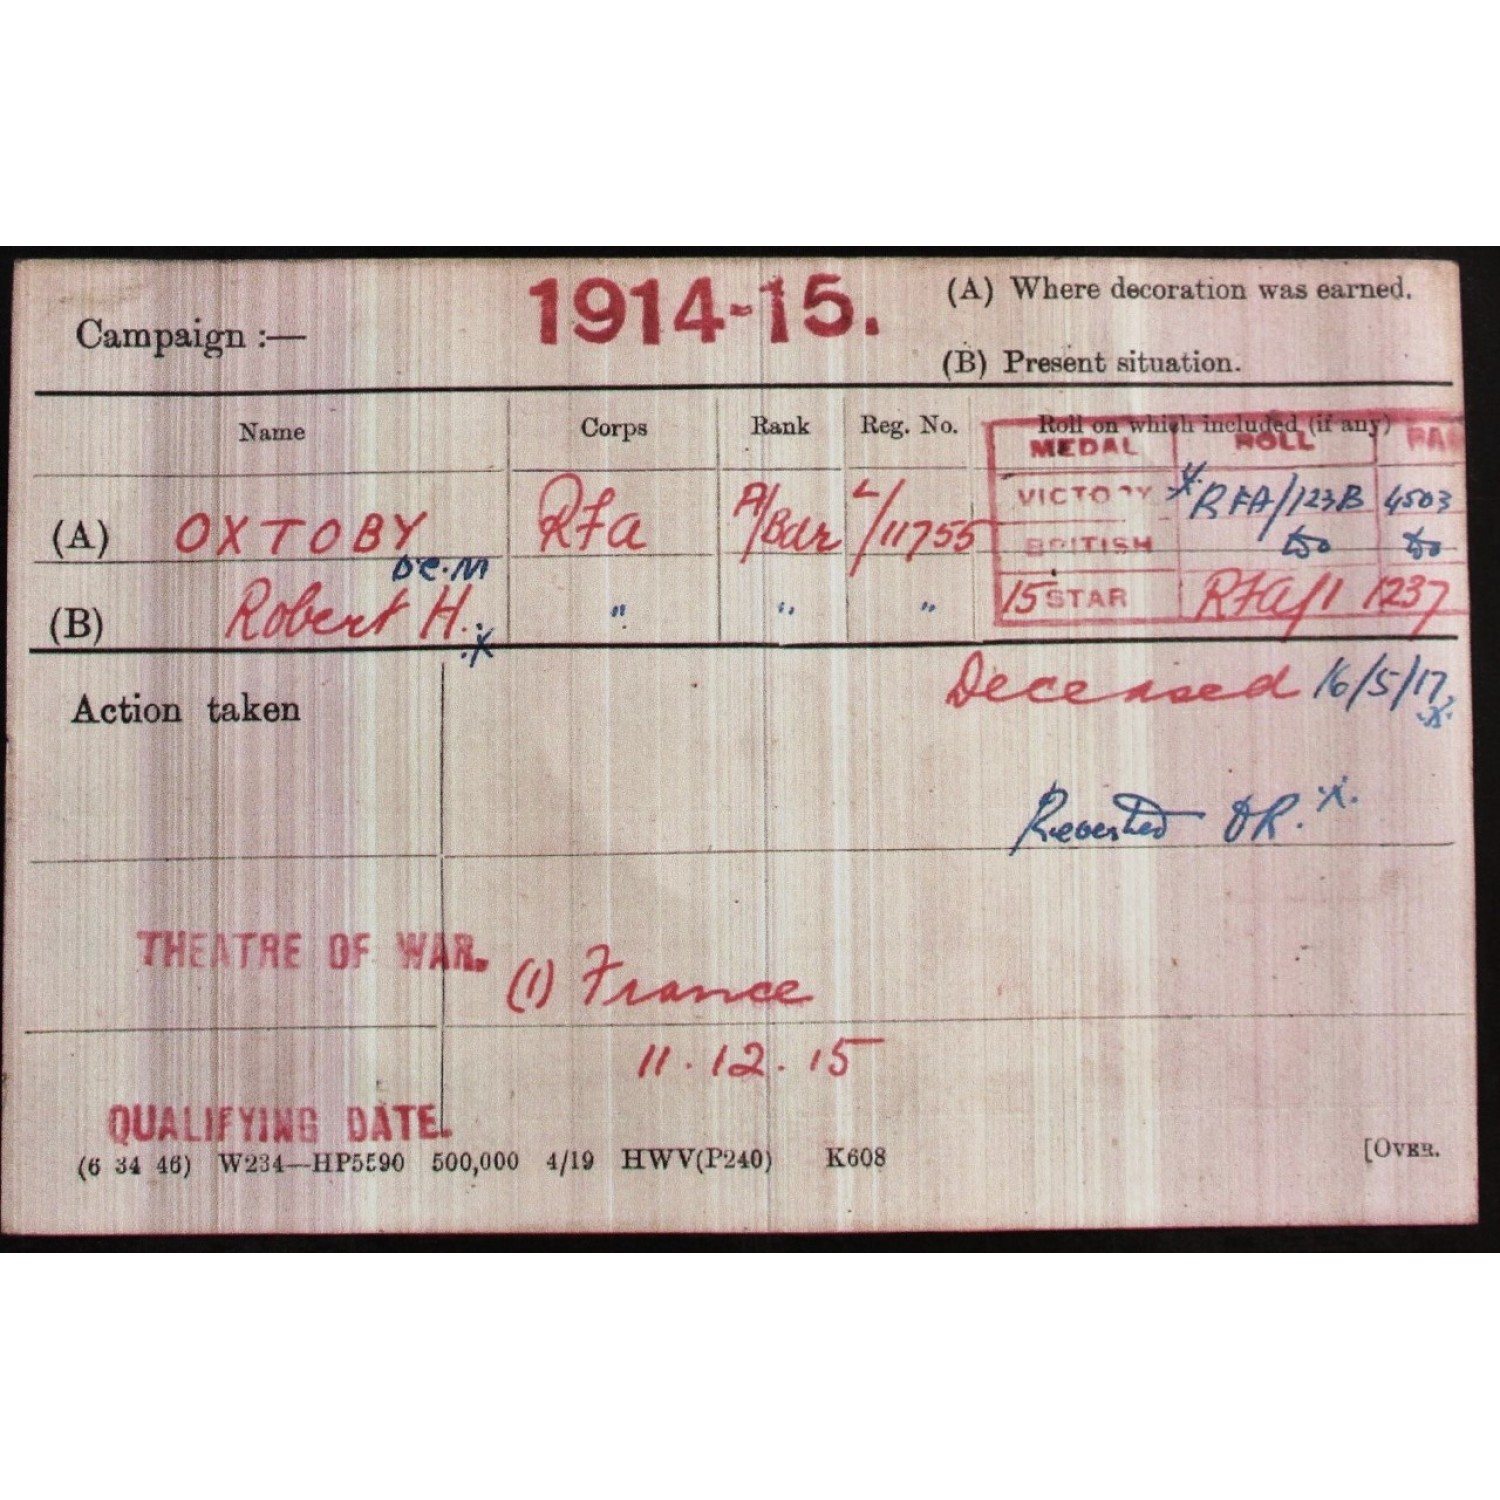 Campaign :— 1914-15. (A) Where decoration was earned.
(B) Present situation.
Name Corps Rank Reg. No. Roll on which included (if any)
MEDAL ROLL PAG
VICTORY x RFA/123B 4503
(A) OXTOBY RFA A/Bdr L/11755
BRITISH do do
D.C.M
15 STAR RFA/1 1237
(B) Robert H. x " " "
Action taken Deceased 16/5/17 x
Reverted DR. x.
THEATRE OF WAR. (1) France
11.12.15
QUALIFYING DATE.
(6 34 46) W234—HP5590 500,000 4/19 HWV(P240) K608 [OVER.